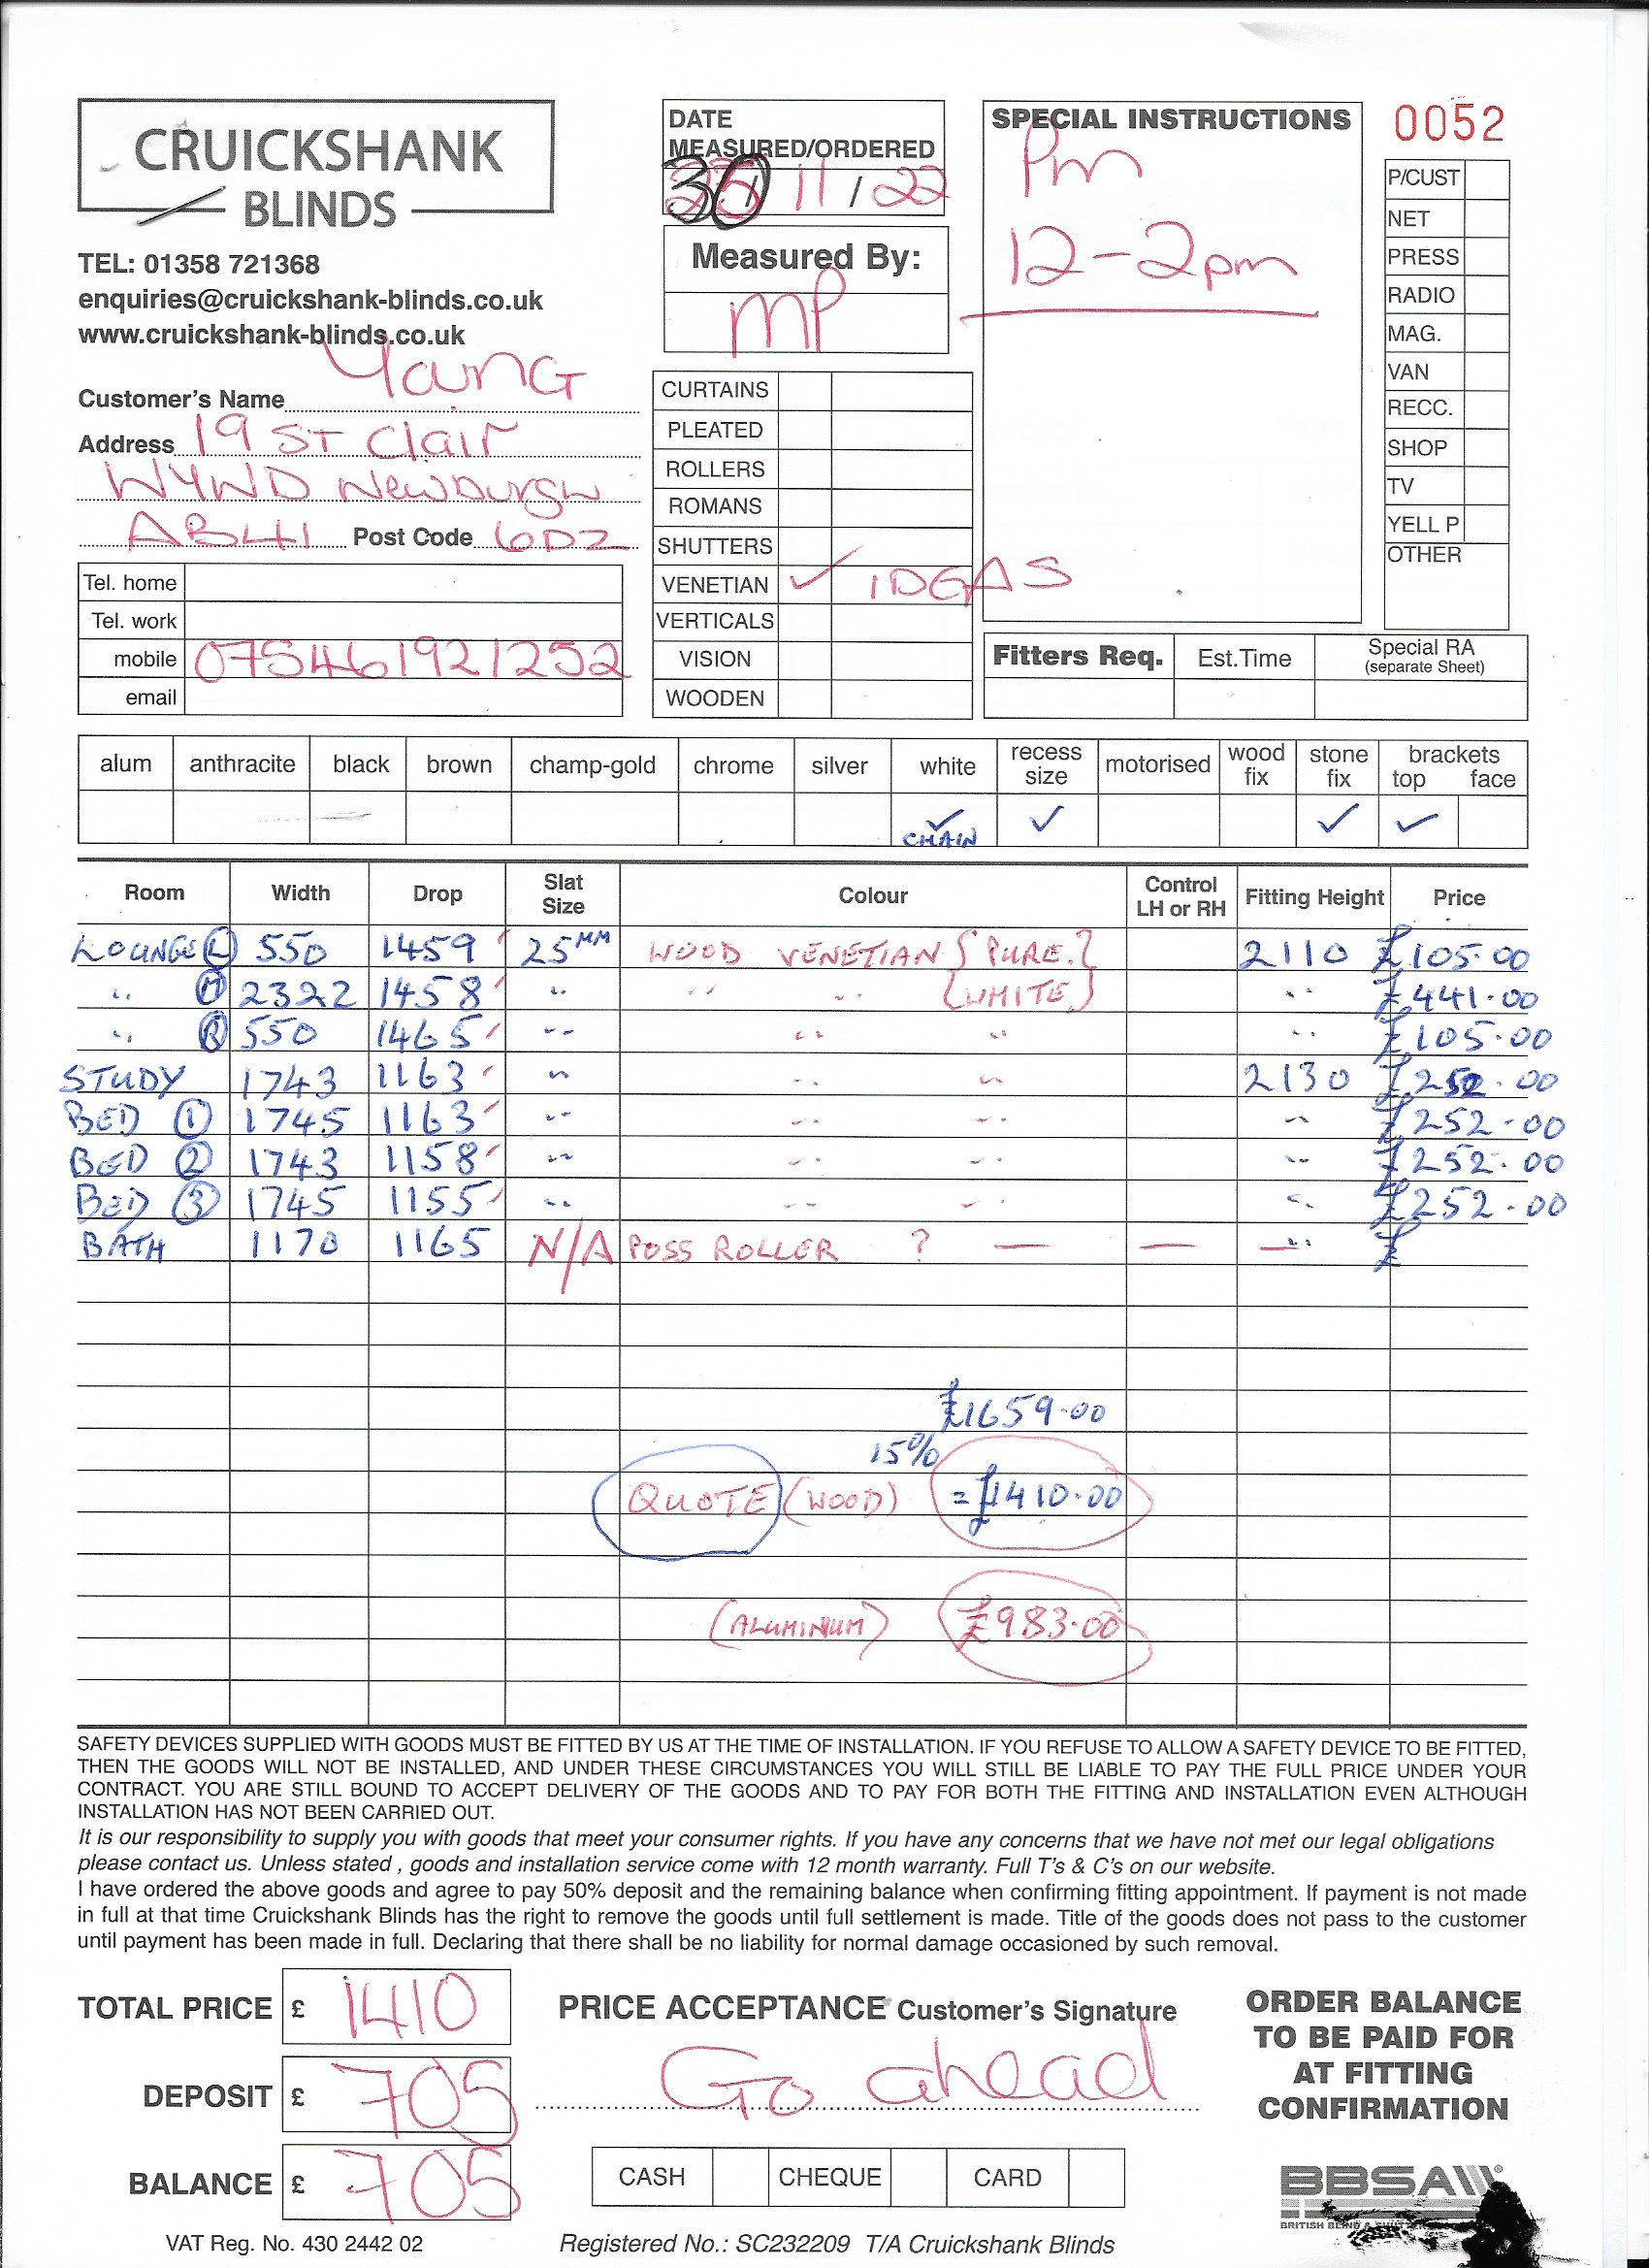 CRUICKSHANK
BLINDS
TEL: 01358 721368
enquiries@cruickshank-blinds.co.uk
www.cruickshank-blinds.co.uk
Customer's Name Young
Address 19 St Clair
WYND Newburgh
AB41 Post Code 6DZ
Tel. home
Tel. work
mobile 075461921252
email
DATE
MEASURED/ORDERED
30/11/22
Measured By:
MP
CURTAINS
PLEATED
ROLLERS
ROMANS
SHUTTERS
VENETIAN ✓ IDEAS
VERTICALS
VISION
WOODEN
SPECIAL INSTRUCTIONS
Pm
12-2pm
0052
P/CUST
NET
PRESS
RADIO
MAG.
VAN
RECC.
SHOP
TV
YELL P
OTHER
Fitters Req. Est.Time Special RA
(separate Sheet)
alum anthracite black brown champ-gold chrome silver white recess size motorised wood fix stone fix brackets top face
✓ CHAIN ✓ ✓ ✓
Room Width Drop Slat Size Colour Control LH or RH Fitting Height Price
LOUNGE (L) 550 1459 25MM WOOD VENETIAN {PURE.} 2110 £105.00
" (M) 2322 1458 " " " {WHITE} " £441.00
" (R) 550 1465 " " " " £105.00
STUDY 1743 1163 " " " 2130 £252.00
BED (1) 1745 1163 " " " " £252.00
BED (2) 1743 1158 " " " " £252.00
BED (3) 1745 1155 " " " " £252.00
BATH 1170 1165 N/A POSS ROLLER ? — — " £
£1659.00
15%
QUOTE (WOOD) = £1410.00
(ALUMINUM) £983.00
SAFETY DEVICES SUPPLIED WITH GOODS MUST BE FITTED BY US AT THE TIME OF INSTALLATION. IF YOU REFUSE TO ALLOW A SAFETY DEVICE TO BE FITTED,
THEN THE GOODS WILL NOT BE INSTALLED, AND UNDER THESE CIRCUMSTANCES YOU WILL STILL BE LIABLE TO PAY THE FULL PRICE UNDER YOUR
CONTRACT. YOU ARE STILL BOUND TO ACCEPT DELIVERY OF THE GOODS AND TO PAY FOR BOTH THE FITTING AND INSTALLATION EVEN ALTHOUGH
INSTALLATION HAS NOT BEEN CARRIED OUT.
It is our responsibility to supply you with goods that meet your consumer rights. If you have any concerns that we have not met our legal obligations
please contact us. Unless stated , goods and installation service come with 12 month warranty. Full T's & C's on our website.
I have ordered the above goods and agree to pay 50% deposit and the remaining balance when confirming fitting appointment. If payment is not made
in full at that time Cruickshank Blinds has the right to remove the goods until full settlement is made. Title of the goods does not pass to the customer
until payment has been made in full. Declaring that there shall be no liability for normal damage occasioned by such removal.
TOTAL PRICE £ 1410
DEPOSIT £ 705
BALANCE £ 705
PRICE ACCEPTANCE Customer's Signature
Go ahead
CASH CHEQUE CARD
ORDER BALANCE
TO BE PAID FOR
AT FITTING
CONFIRMATION
BBSA
BRITISH BLIND &
VAT Reg. No. 430 2442 02
Registered No.: SC232209 T/A Cruickshank Blinds